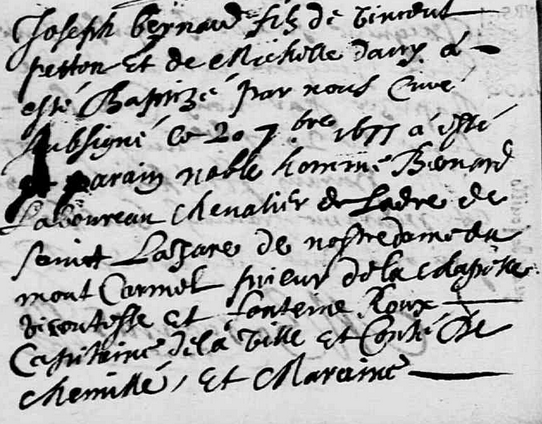 Joseph bernard filz de vincent
petton et de Michelle dauy a
esté Baptizé par nous Curé
subsigné ce 20 7.bre 1677 a esté
parain noble homme Benard
Laboureau chevalier de Lodre de
sainct Lazare de nostre dame du
mont Carmel prieur de la chapelle
vicontesse et fonteine Roux
Capitaine de la ville et Conté de
chemillé, et Maraine